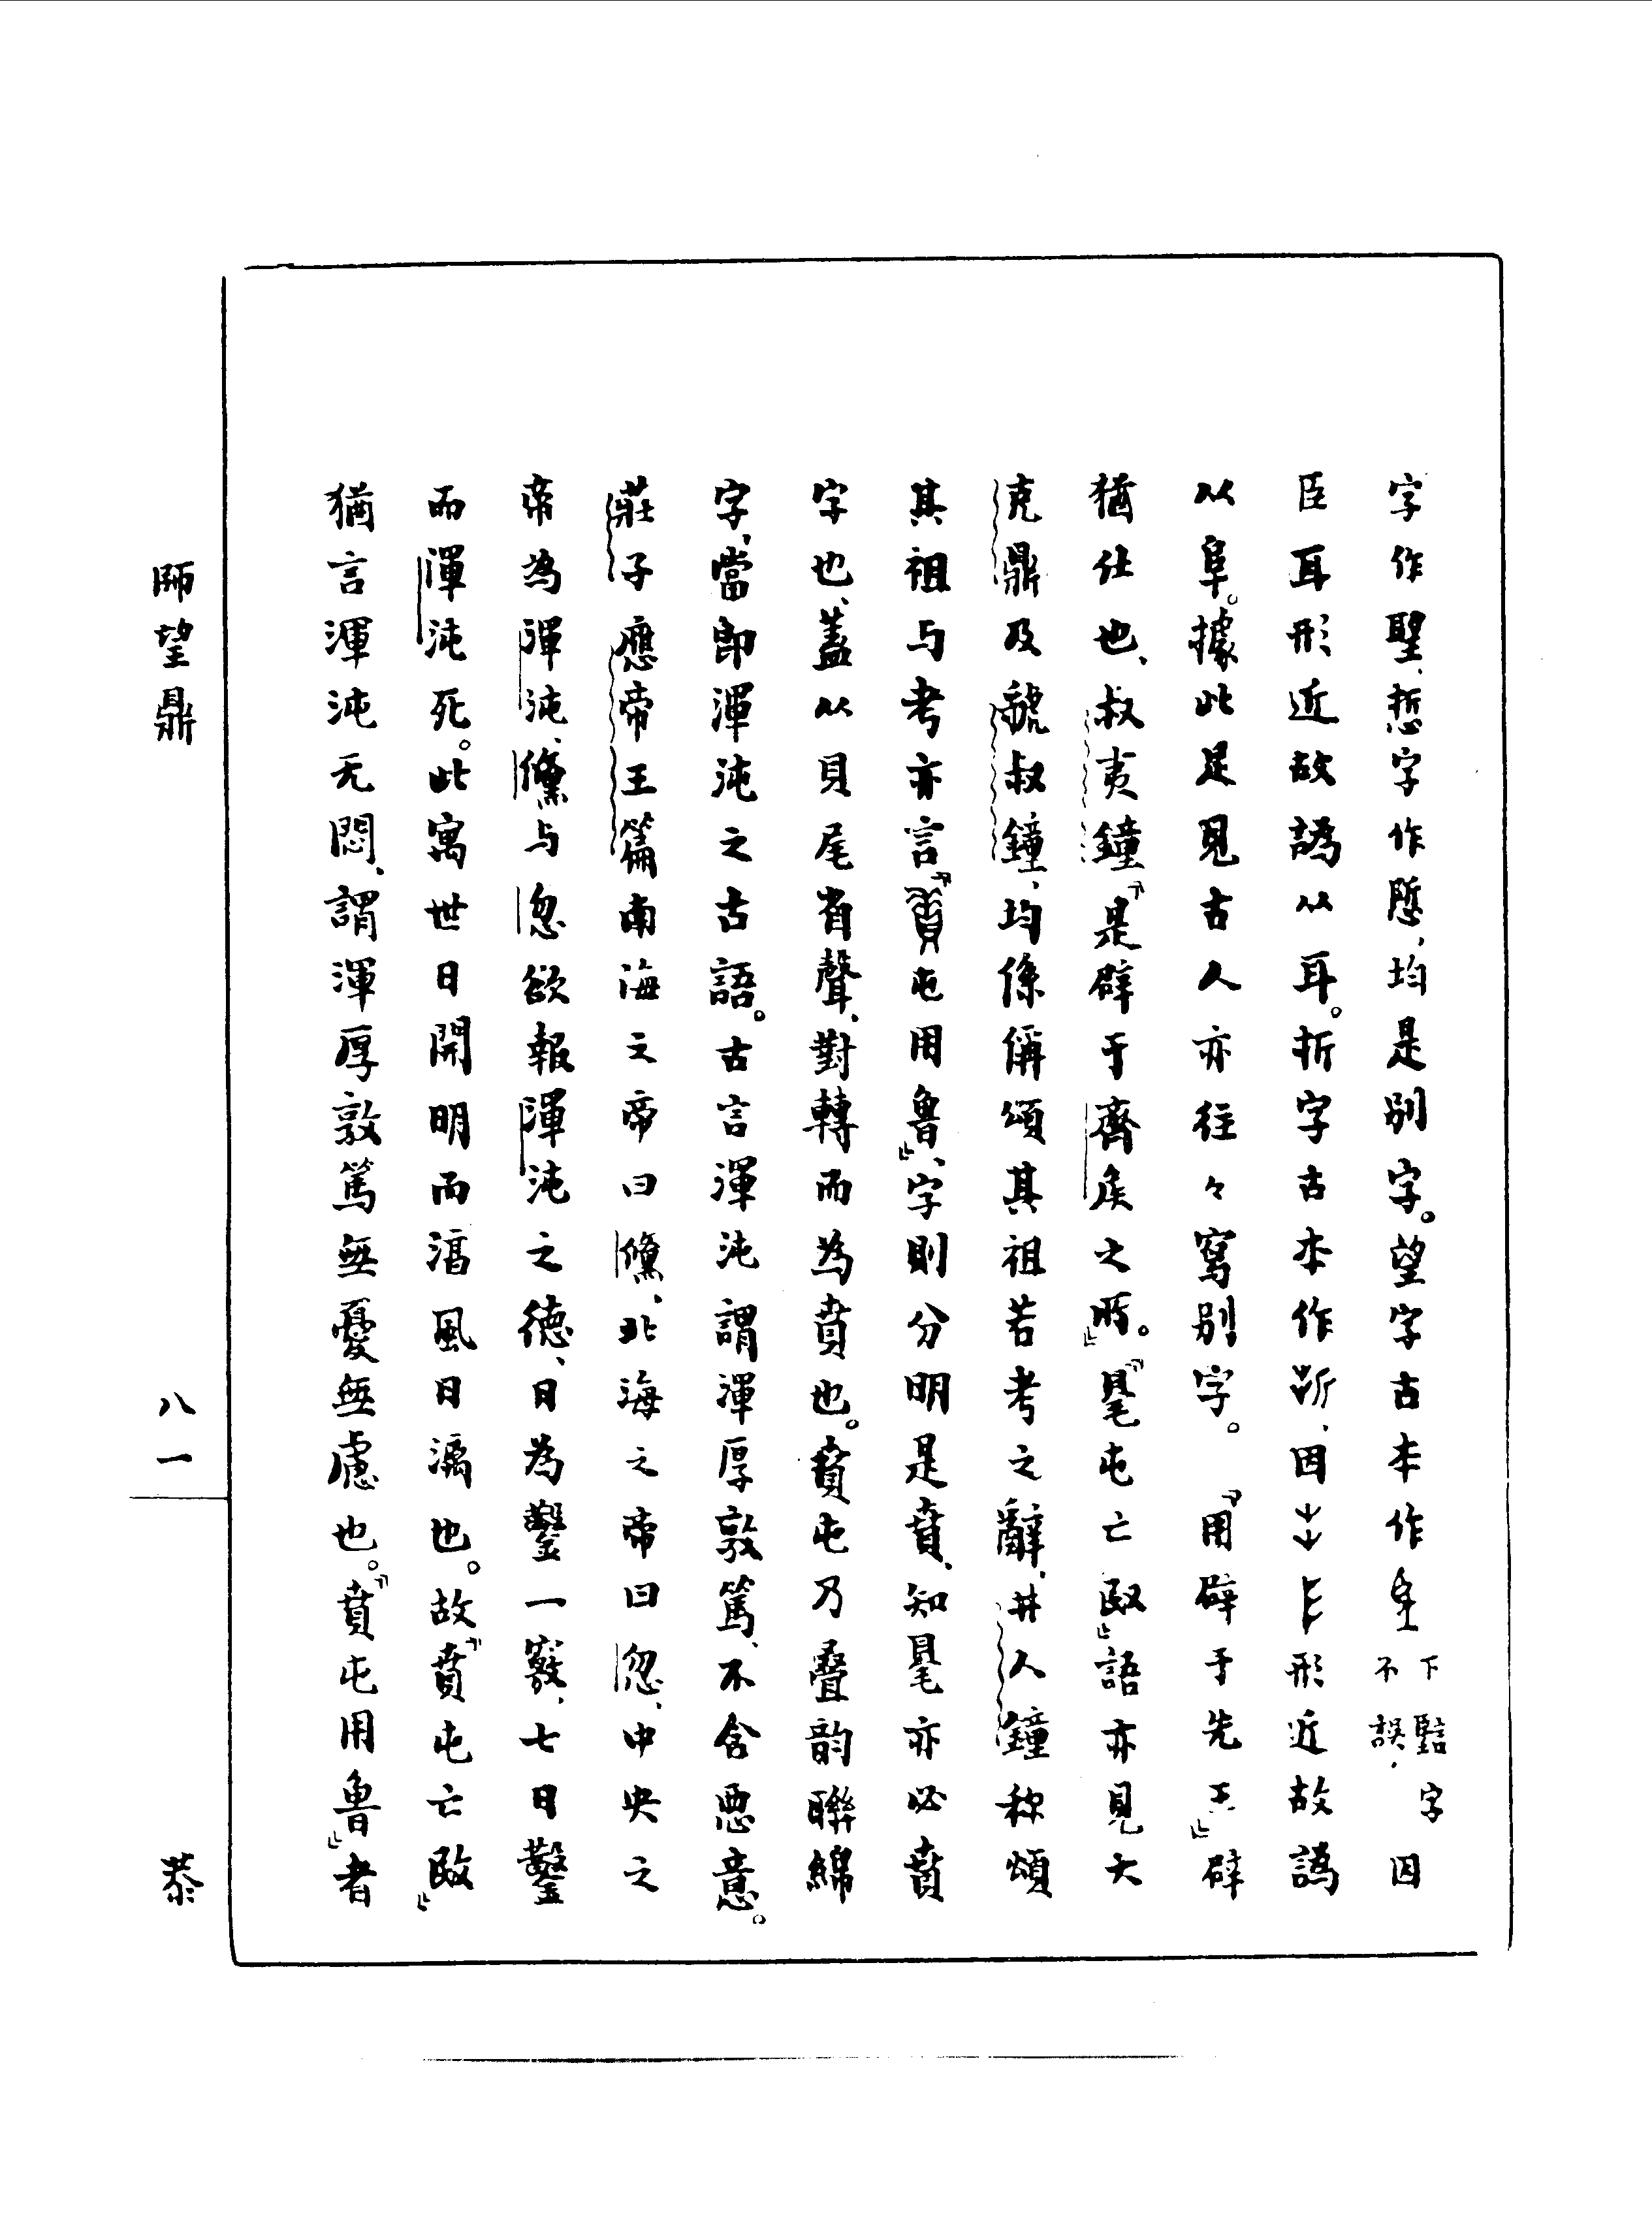 字作聖、悊字作悊、均是別字。望字古本作下監字不誤、因
臣耳形近故譌从耳。折字古本作、因形近故譌
从阜。據此足見古人亦往々寫別字。『用辟于先王』辟
猶仕也、叔夷鐘『是辟于齊侯之所』。『屯亡敃』語亦見大
克鼎及虢叔鐘、均係偁頌其祖若考之辭、井人鐘称頌
其祖与考亦言『屯用魯』、字則分明是賁、知亦必賁
字也、蓋从貝尾省聲、對轉而為賁也。賁屯乃疊韵聯綿
字、當即渾沌之古語。古言渾沌謂渾厚敦篤、不含悪意。
莊子應帝王篇南海之帝曰儵、北海之帝曰忽、中央之
帝為渾沌、儵与忽欲報渾沌之德、日為鑿一竅、七日鑿
而渾沌死。此寓世日開明而淳風日漓也。故『賁屯亡敃』
猶言渾沌无悶、謂渾厚敦篤無憂無慮也。『賁屯用魯』者
師望鼎
八一
㳟